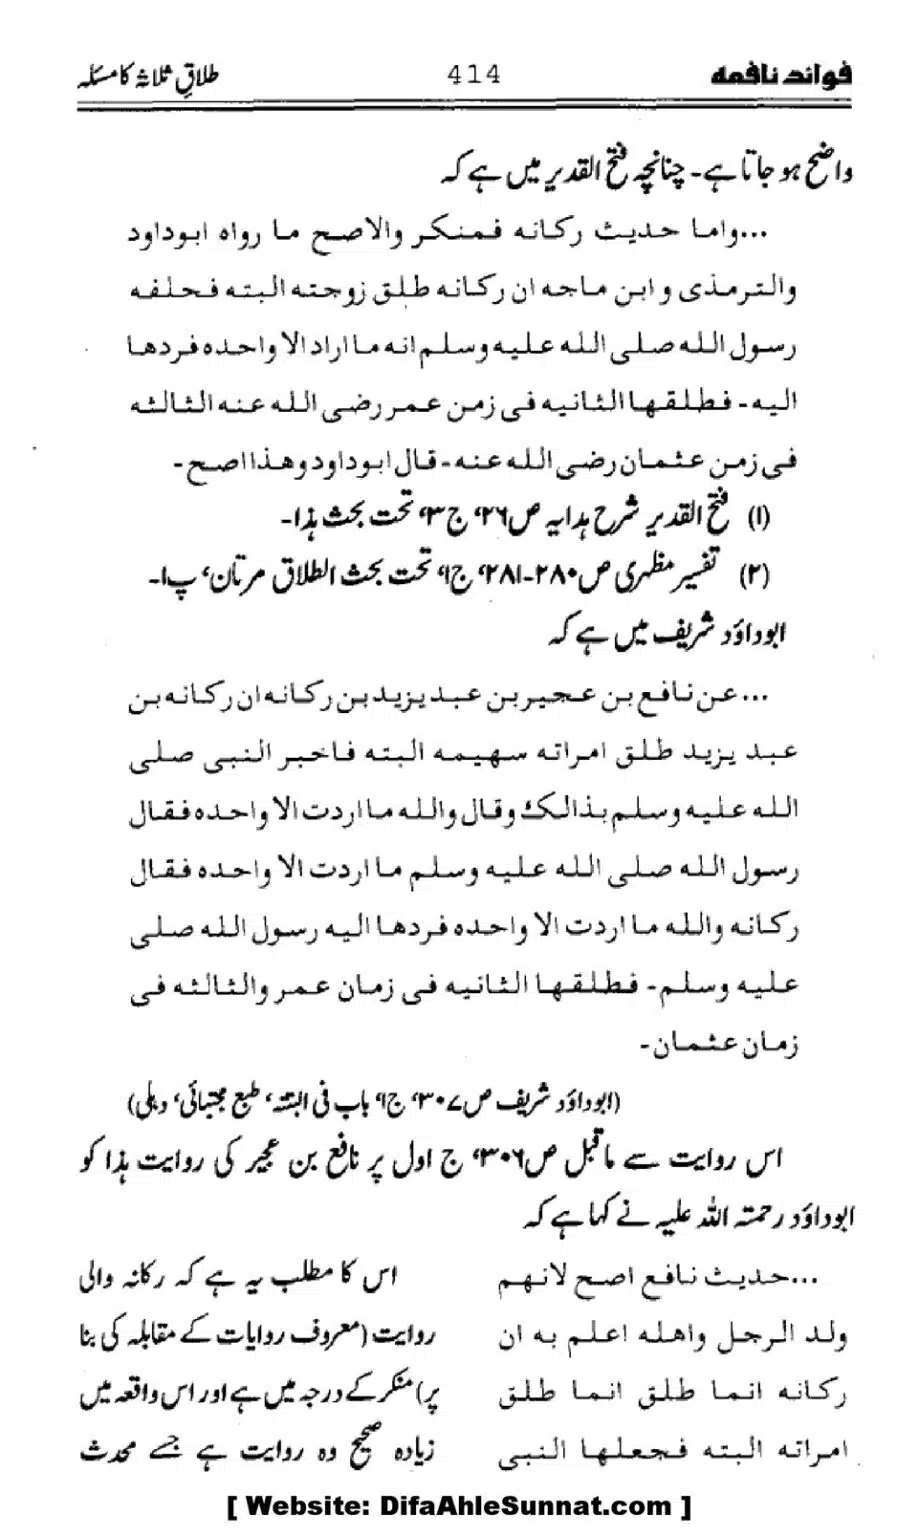 فوائد نافعہ 414 طلاقِ ثلاثہ کا مسئلہ
واضح ہو جاتا ہے۔ چنانچہ فتح القدیر میں ہے کہ
...واما حدیث رکانه فمنکر والاصح ما رواه ابوداود
والترمذی و ابن ماجه ان رکانه طلق زوجته البته فحلفه
رسول الله صلی الله علیه وسلم انه ما اراد الا واحده فردها
الیه۔ فطلقها الثانیه فی زمن عمر رضی الله عنه الثالثه
فی زمن عثمان رضی الله عنه۔ قال ابوداود وهذا اصح۔
(۱) فتح القدیر شرح ہدایہ ص۲۶، ج۳، تحت بحث ہذا۔
(۲) تفسیر مظہری ص۲۸۰-۲۸۱، ج۱، تحت بحث الطلاق مرتان، پ۱۔
ابوداؤد شریف میں ہے کہ
...عن نافع بن عجیر بن عبد یزید بن رکانه ان رکانه بن
عبد یزید طلق امراته سهیمه البته فاخبر النبی صلی
الله علیه وسلم بذالک وقال والله ما اردت الا واحده فقال
رسول الله صلی الله علیه وسلم ما اردت الا واحده فقال
رکانه والله ما اردت الا واحده فردها الیه رسول الله صلی
علیه وسلم۔ فطلقها الثانیه فی زمان عمر والثالثه فی
زمان عثمان۔
(ابوداؤد شریف ص۳۰۷، ج۱، باب فی البتہ، طبع مجتبائی، دہلی)
اس روایت سے ماقبل ص۳۰۶، ج اول پر نافع بن عجیر کی روایت ہذا کو
ابوداؤد رحمتہ اللہ علیہ نے کہا ہے کہ
...حدیث نافع اصح لانهم
ولد الرجل واهله اعلم به ان
رکانه انما طلق انما طلق
امراته البته فجعلها النبی
اس کا مطلب یہ ہے کہ رکانہ والی
روایت (معروف روایات کے مقابلہ کی بنا
پر) منکر کے درجہ میں ہے اور اس واقعہ میں
زیادہ صحیح وہ روایت ہے جسے محدث
[ Website: DifaAhleSunnat.com ]